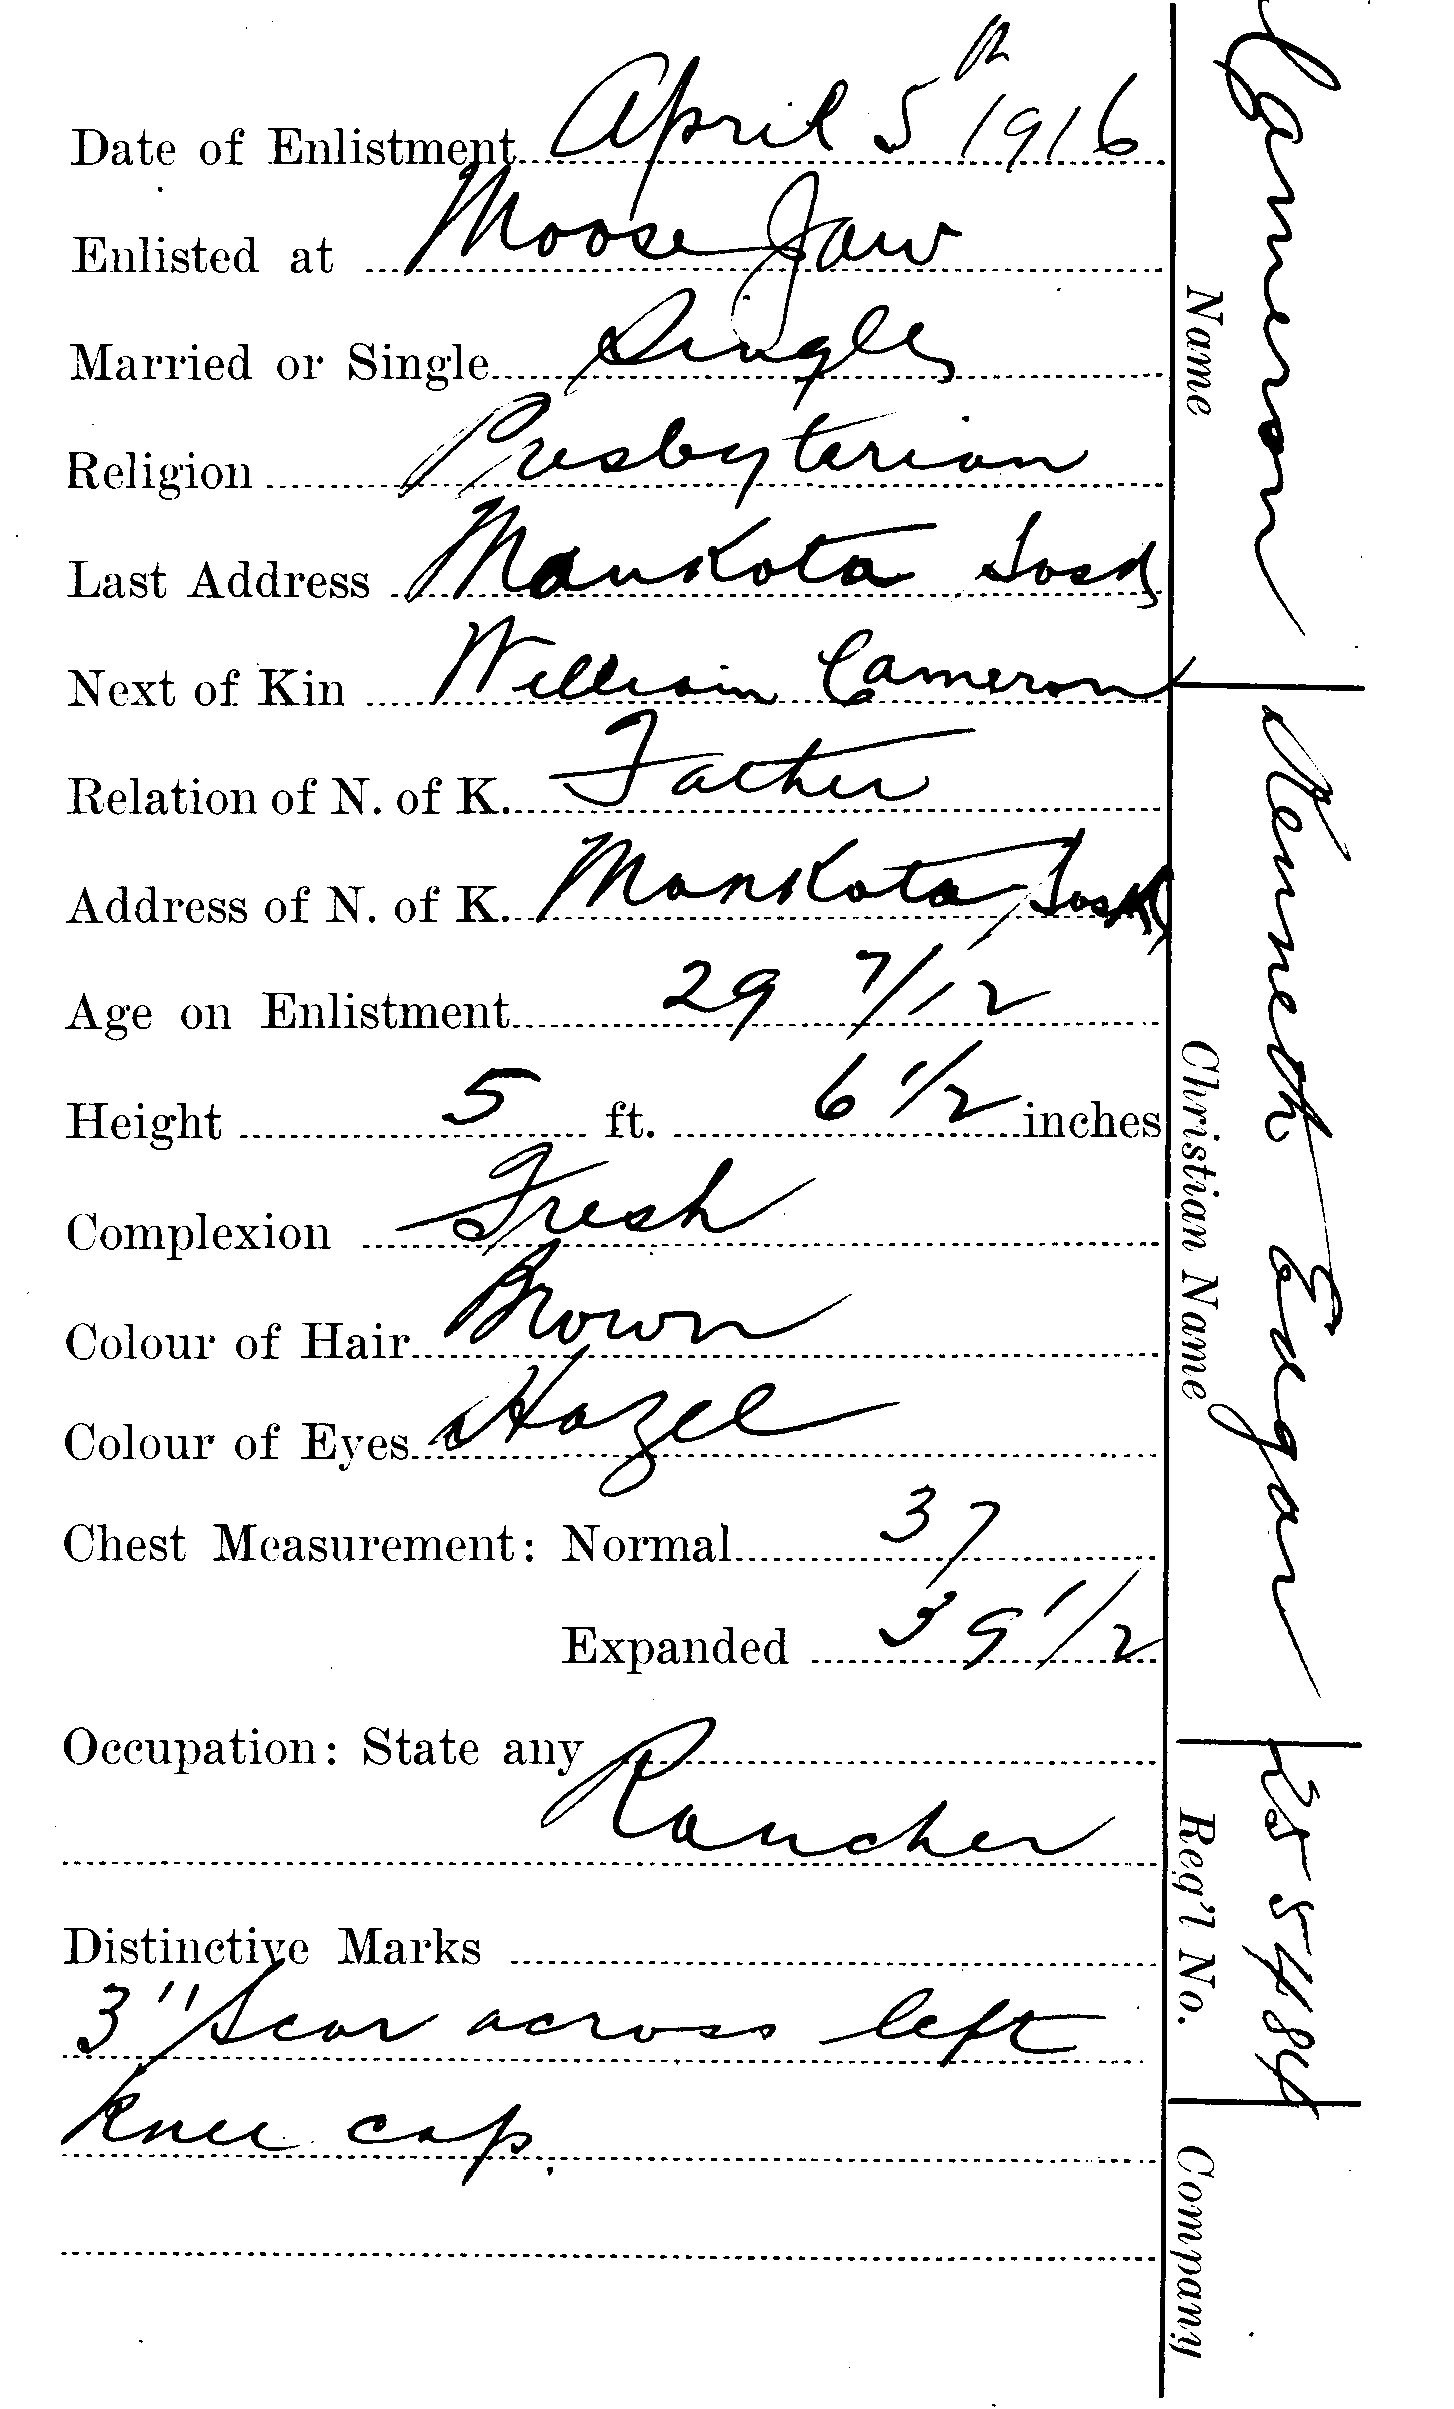 Date of Enlistment April 5th 1916
Enlisted at Moose Jaw
Married or Single Single
Religion Presbyterian
Last Address Mankota Sask
Next of Kin William Cameron
Relation of N. of K. Father
Address of N. of K. Mankota, Sask
Age on Enlistment 29 7/12
Height 5 ft. 6 1/2 inches
Complexion Fresh
Colour of Hair Brown
Colour of Eyes Hazel
Chest Measurement: Normal 37
Expanded 39 1/2
Occupation: State any
Rancher
Distinctive Marks
3" Scar across left
knee cap.
Cameron Kenneth Edgar
Name Christian Name Reg'l No. Company